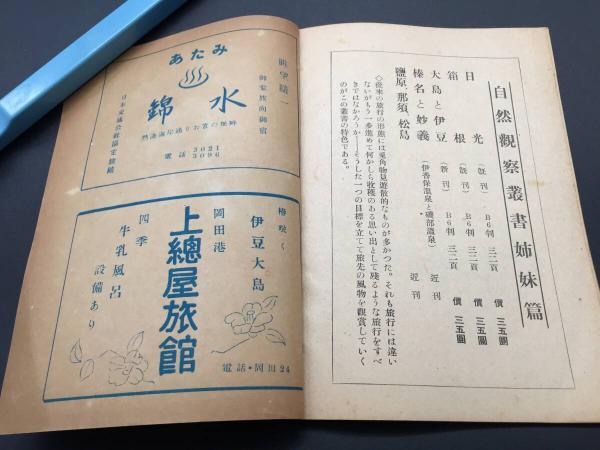 自然觀察叢書姉妹篇
日光 (既刊) B6判 三二頁 價 三五圓
箱根 (新刊) B6判 三二頁 價 三五圓
大島と伊豆 (新刊) B6判 三二頁 價 三五圓
榛名と妙義 (伊香保溫泉と磯部溫泉) 近刊
鹽原、那須、松島 近刊
◇從來の旅行の形態には兎角物見遊散的なものが多かつた。それも旅行には違い
ないがもう一步進めて何かしら收穫のある思い出として殘るような旅行をすべ
きではなかろうか――そうした一つの目標を立てて旅先の風物を觀賞していく
のがこの叢書の特色である。
眺望隨一
御家族向御宿
あたみ
錦水
熱海海岸通りお宮の松畔
電話 3021
3096
日本交通公社協定旅館
椿咲く
伊豆大島
岡田港
上總屋旅館
四季
牛乳風呂
設備あり
電話・岡田24